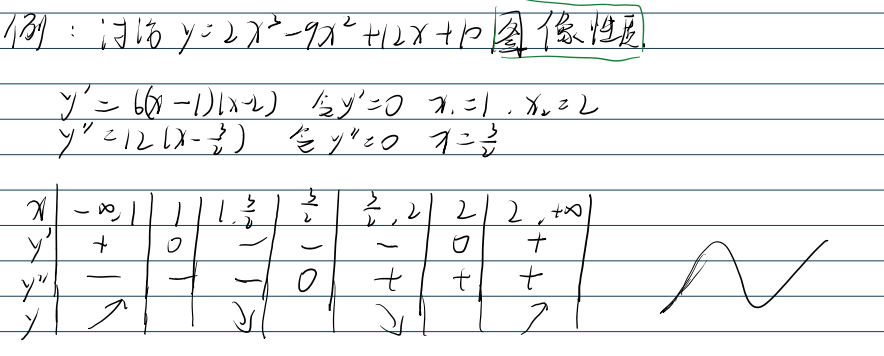 例：讨论 y=2x³-9x²+12x+10 图像性质
y'=6(x-1)(x-2) 令y'=0 x₁=1, x₂=2
y''=12(x-3/2) 令y''=0 x=3/2
x | -∞,1 | 1 | 1,3/2 | 3/2 | 3/2,2 | 2 | 2,+∞
y' | + | 0 | - | - | - | 0 | +
y'' | - | - | - | 0 | + | + | +
y | ↗ | | ↘ | | ↘ | | ↗